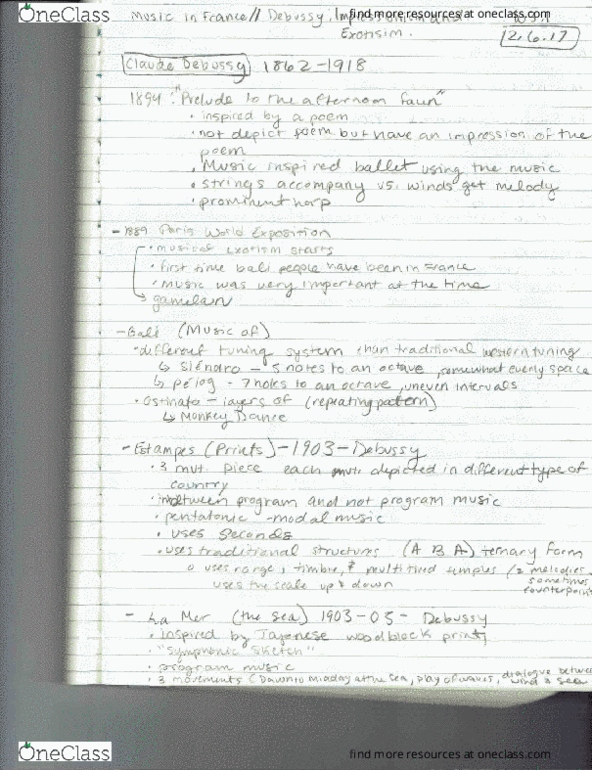 OneClass
find more resources at oneclass.com
Music in France // Debussy, Impressionism and
Exotisim.
12.6.17
Claude Debussy 1862-1918
1894: "Prelude to the afternoon faun"
• inspired by a poem
• not depict poem but have an impression of the
poem
• Music inspired ballet using the music
• strings accompany vs. winds get melody
• prominent harp
- 1889 Paris World Exposition
• musical exotism starts
• first time bali people have been in France
• music was very important at the time
gamelan
- Bali (Music of)
• different tuning system than traditional western tuning
↳ Sléndro - 5 notes to an octave, somewhat evenly space
↳ pélog - 7 notes to an octave, uneven intervals
• Ostinato - layers of (repeating pattern)
↳ Monkey Dance
- Estampes (Prints) - 1903 - Debussy
• 3 mvt. piece each mvt. depicted in different type of
country
• in between program and not program music
• pentatonic - modal music
• uses seconds
• uses traditional structures (A B A) ternary form
o uses range, timbre, & multi tired temples (2 melodies,
uses the scale up & down sometimes
counterpoint
- La Mer (the sea) 1903-05 - Debussy
• inspired by Japenese woodblock prints
• "Symphonic Sketch"
• program music
• 3 movements (Dawn to midday at the sea, play of waves, dialogue between
wind & sea
OneClass
find more resources at oneclass.com